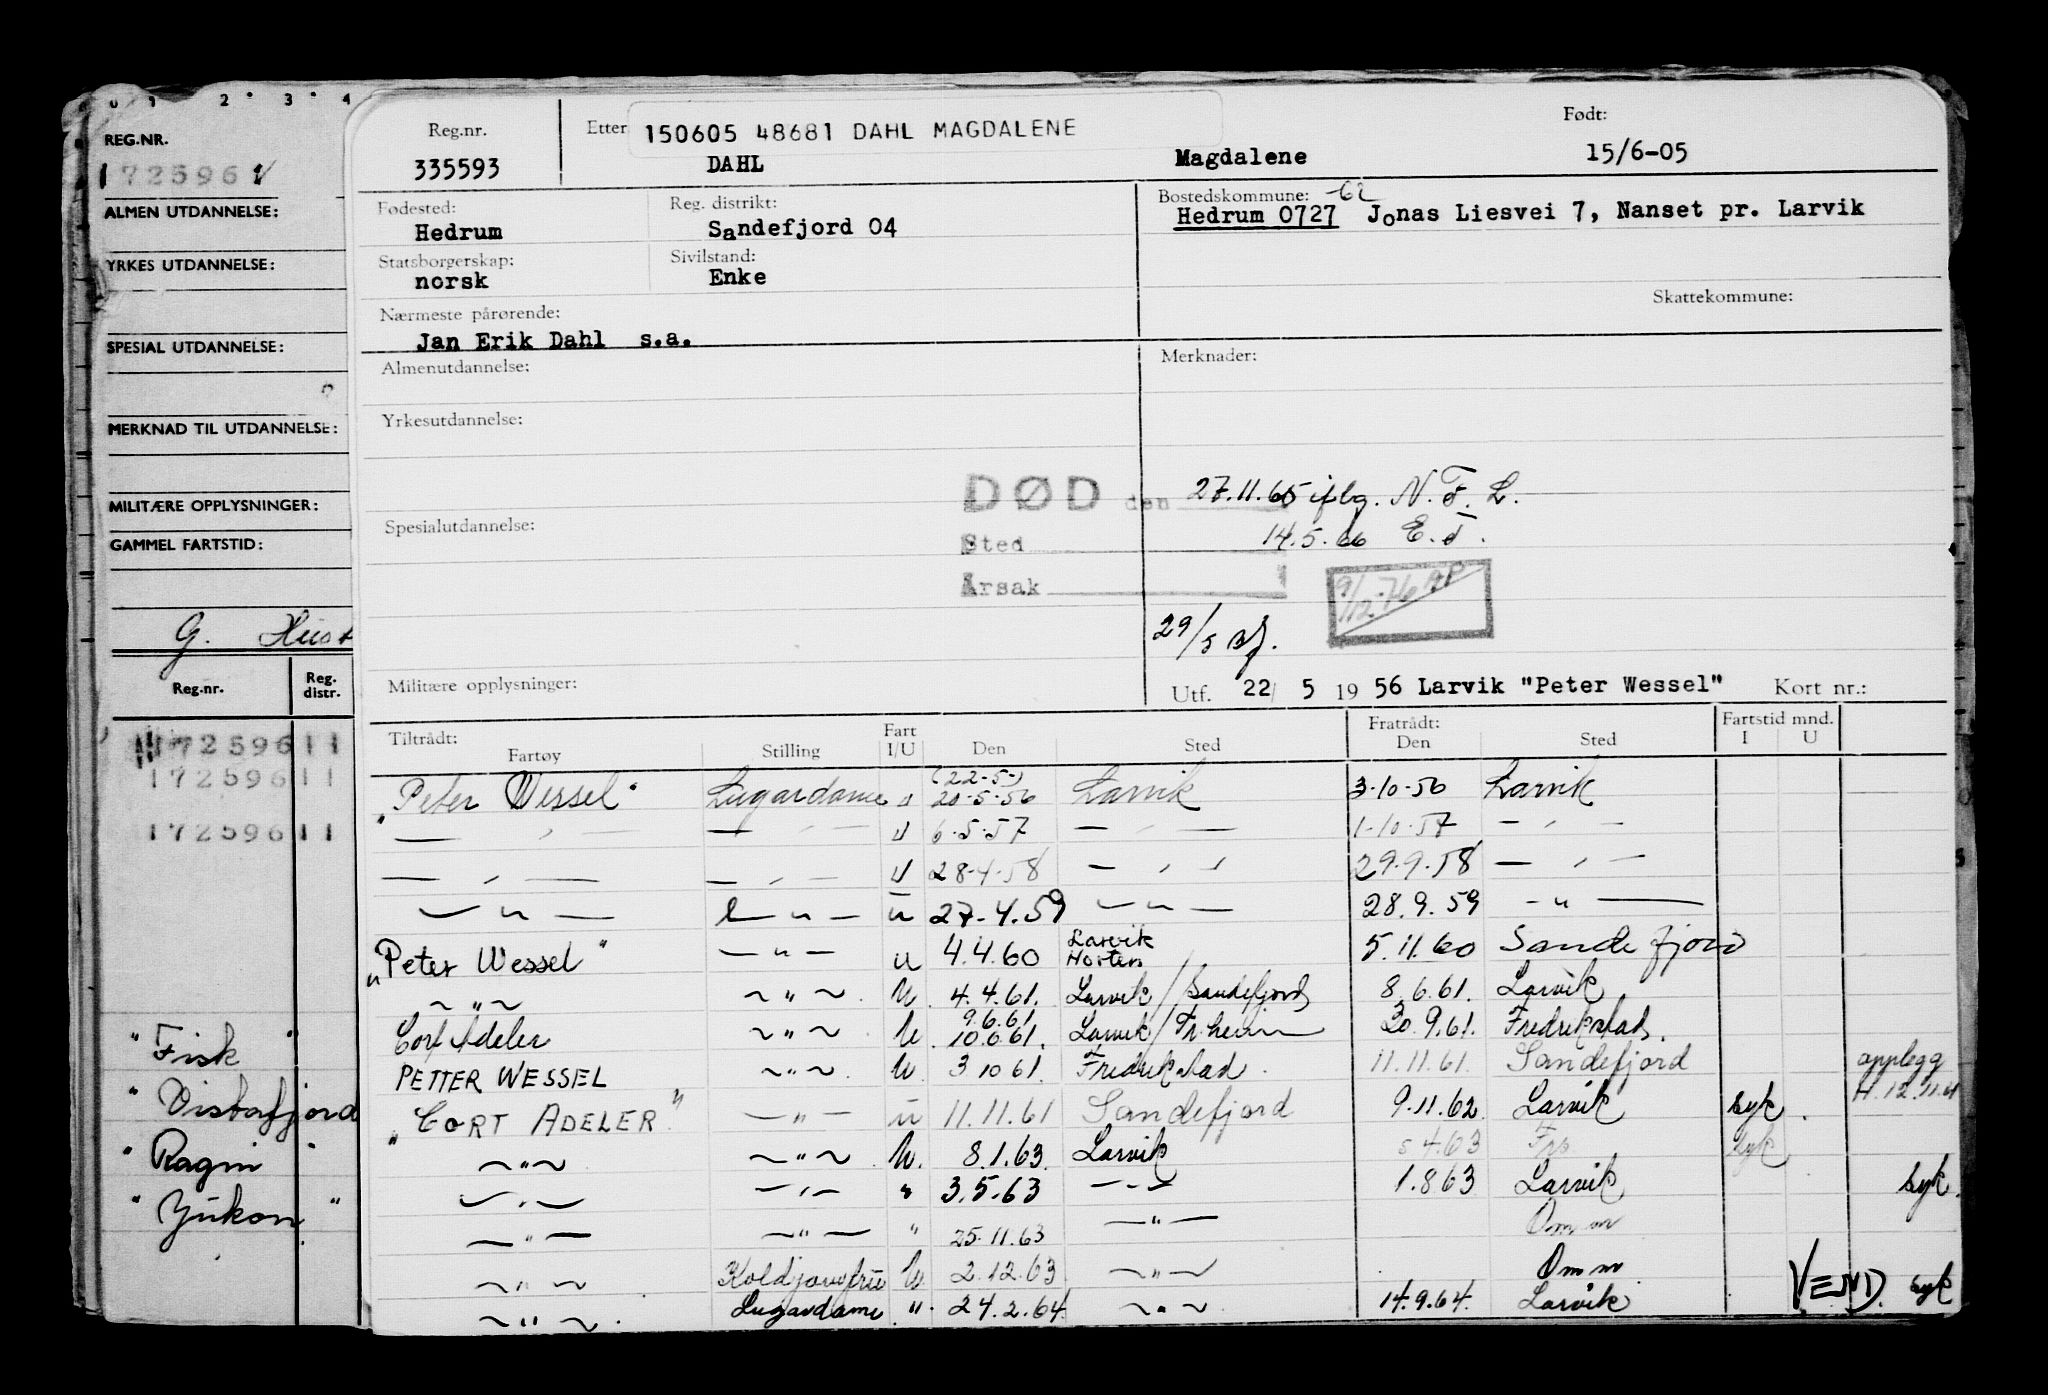 0 1 2 3 4
REG.NR.
1725961
ALMEN UTDANNELSE:
YRKES UTDANNELSE:
SPESIAL UTDANNELSE:
MERKNAD TIL UTDANNELSE:
MILITÆRE OPPLYSNINGER:
GAMMEL FARTSTID:
G.
Reg.nr. Reg. distr.
1725961 1
1725961 1
1725961 1
"Fisk"
"Ragni"
"Yukon"
Reg.nr. Etter 150605 48681 DAHL MAGDALENE Født:
335593 DAHL Magdalene 15/6-05
Fødested: Reg. distrikt: Bostedskommune: -62
Hedrum Sandefjord 04 Hedrum 0727 Jonas Liesvei 7, Nanset pr. Larvik
Statsborgerskap: Sivilstand:
norsk Enke
Skattekommune:
Nærmeste pårørende:
Jan Erik Dahl s.a.
Almenutdannelse: Merknader:
Yrkesutdannelse:
DØD den 27.11.65 iflg. N.T.L.
Spesialutdannelse:
Sted 14.5.66 E.J.
Årsak 9/12-76
29/5
Militære opplysninger: Utf. 22/ 5 19 56 Larvik "Peter Wessel" Kort nr.:
Tiltrådt: Fart Fratrådt: Fartstid mnd.
Fartøy Stilling I/U Den Sted Den Sted I U
"Peter Wessel" Lugardame u (22-5-) 20-5-56 Larvik 3-10-56 Larvik
— " — — " — u 6-5-57 — " — 1-10-57 — " —
— " — — " — u 28-4-58 — " — 29.9.58 — " —
— " — — " — u 27-4.59 — " — 28.9.59 — " —
"Peter Wessel" — " — u 4.4.60 Larvik Horten 5.11.60 Sandefjord
— " — — " — U. 4.4.61. Larvik/Sandefjord 8.6.61. Larvik
Cort Adeler — " — U. 9.6.61 10.6.61. Larvik/Fr.havn 30.9.61. Fredrikstad.
PETTER WESSEL — " — U. 3.10 61. Fredrikstad. 11.11.61. Sandefjord opplegg
"CORT ADELER" — " — u 11.11.61 Sandefjord 9.11.62. Larvik syk. H.12.11.61
— " — — " — U. 8.1.63. Larvik 5 4.63 Frs syk
— " — — " — " 3.5.63 — " — 1.8 63 Larvik syk.
— " — — " — " 25.11.63 — " — Om m
— " — Koldjomfru U. 2.12.63 — " — Om m
— " — Lugardame " 24.2.64. — " — 14.9.64. Larvik VEND. syk